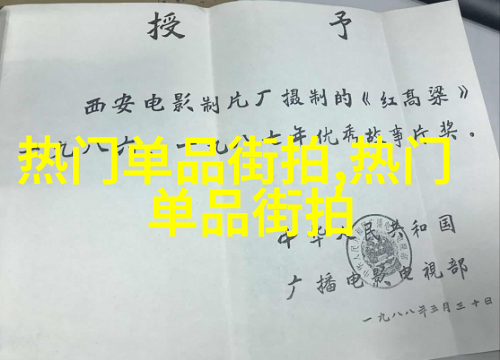 授 予
西安电影制片厂摄制的《红高梁》
一九八六、一九八七年优秀故事片奖。
热门单品街拍,热门
单品街拍
中华人民共和国
广播电影电视部
一九八八年三月三十日